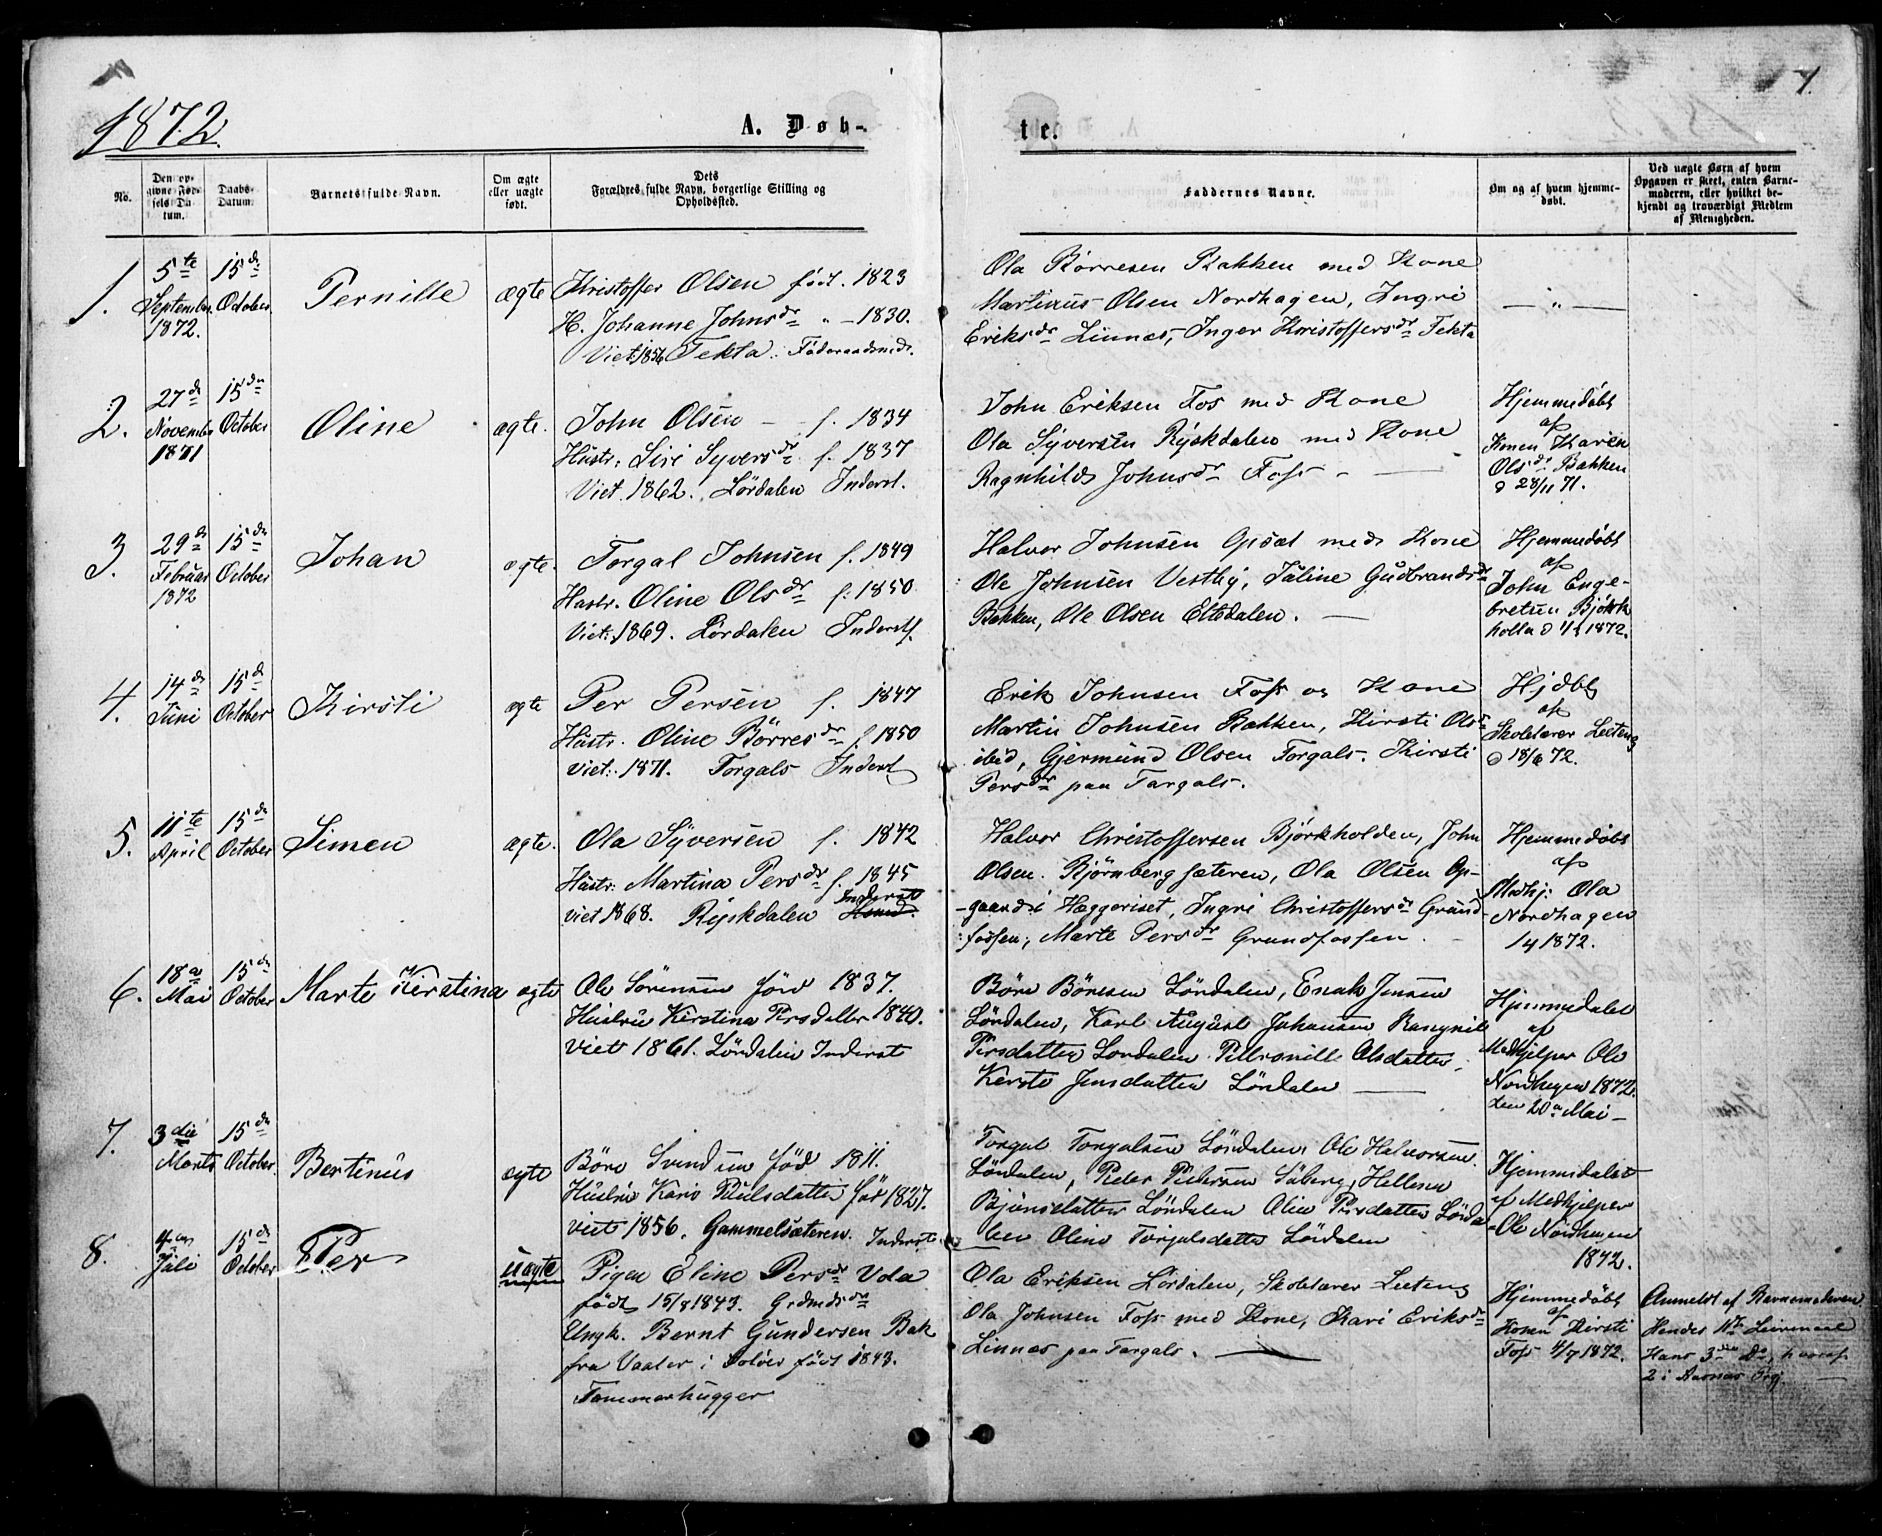 1872.
A. Døb-
te.
1.
No.
Den op-
givne Fød-
sels Da-
tum.
Daabs-
Datum.
Barnets fulde Navn.
Om ægte
eller uægte
født.
Dets
Forældres fulde Navn, borgerlige Stilling og
Opholdssted.
Faddernes Navne.
Om og af hvem hjemme-
døbt.
Ved uægte Børn af hvem
Opgaven er skeet, enten Barne-
moderen, eller hvilket be-
kjendt og troværdigt Medlem
af Menigheden.
1.
5te
September
1872.
15de
October
Pernille
ægte
Kristoffer Olsen født. 1823
H. Johanne Johnsdr " - 1830.
Viet 1856 Tekta. Føderaadsmd.
Ola Børresen Bakken med Kone
Martinus Olsen Nordhagen, Ingri
Eriksdr Linnes, Inger Kristoffersdr Tekta
— " —
2.
27de
November
1871
15de
October
Oline
ægte.
John Olsen - f. 1834
Hustr. Siri Syversdr f. 1837
Viet. 1862. Lørdalen Inderst.
John Eriksen Fos med Kone
Ola Syversen Ryskdalen med Kone
Ragnhild Johnsdr Foss - —
Hjemmedøbt
af
Konen Karen
Olsdr Bakken
d 28/11 71.
3.
29de
Februar
1872
15de
October
Johan
ægte.
Torgal Johnsen f. 1849
Hustr. Oline Olsdr f: 1850
Viet: 1869. Lørdalen Inderst.
Halvor Johnsen Opsæt med Kone
Ole Johnsen Vestby, Taline Gudbrandsdr
Bakken, Ole Olsen Eltedalen. —
Hjemmedøbt
af
John Enge-
bretsen Bjørk
holla d 1/4 1872.
4.
14de
Juni
15de
October
Kirsti
ægte
Per Persen f. 1847
Hustr. Oline Børresdr f 1850
viet: 1871. Torgals Inderst
Erik Johnsen Foss og Kone
Martin Johnsen Bakken, Kirsti Olsdr
ibid, Gjermund Olsen Torgals. Kirsti
Persdr paa Torgals.
Hjdbt
af
Skolelærer Leeteng
d 18/6 72.
5.
11te
April
15de
October
Simen
ægte.
Ola Syversen f. 1842
Hustr: Martina Persdr f. 1845
Inderst
viet 1868. Ryskdalen
Halvor Christoffersen Bjørkholden, John
Olsen. Bjørnbergsæteren, Ola Olsen Op-
-gaard i Hæggeriset, Ingri Christoffersdr Grund-
fossen, Marte Persdr Grundfossen. -
Hjemmedøbt
af
Medhj: Ola
Nordhagen
1872.
6.
18de
Mai
15de
October
Marte Kerstina
ægte
Ole Sørensen fød 1837.
Hustru Kerstina Persdatter 1840.
viet 1861. Lørdalen Inderst
Børe Børesen Lørdalen, Enok Jensen
Lørdalen, Karl August Johansen Rangnil
Persdatter Lørdalen Petronille Olsdatter,
Kersti Jensdatter Lørdalen —
Hjemmedøbt
af
Medhjelper Ole
Nordhagen 1872.
den 20de Mai -
7.
3die
Marts
15de
October
Bertinus
ægte
Børe Svendsen fød 1811.
Hustru Kari Paulsdatter fød 1827.
viet 1856. Gammelsæteren. Inderst
Torgal Torgalsen Lørdalen, Ole Halvorsen
Lørdalen, Peder Pedersen Søberg, Hellena
Bjørnsdatter Lørdalen Oline Persdatter Lørda
len Oline Torgalsdatter Lørdalen
Hjemmedøbt
af Medhjelper
Ole Nordhagen
1872.
8.
4de
Juli
15de
October
Per
uægte
Pigen Eline Persdr Vola
født 15/8 1843.
Ungk. Bernt Gundersen Bak
fra Vaaler i Solør født 1843.
Tømmerhugger
Ola Eriksen Lørdalen, Skolelærer Leeteng
Ola Johnsen Foss med Kone, Kari Eriksdr
Linnes paa Torgals. —
Hjemmedøbt
af
Konen Kirsti
Foss 4/7 1872.
Anmeldt af Barnemoderen
Hendes 1ste Leiermaal
Hans 3die Do, hvoraf
2 i Aasnes Prgj.